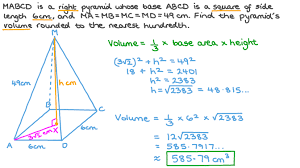 MABCD is a right pyramid whose base ABCD is a square of side
length 6cm, and MA=MB=MC=MD=49cm. Find the pyramid's
volume rounded to the nearest hundredth.
M
49cm
h cm
B
C
3√2 cm
X
6cm
A
6cm
D
Volume = 1/3 × base area × height
(3√2)² + h² = 49²
18 + h² = 2401
h² = 2383
h = √2383 = 48.815...
Volume = 1/3 × 6² × √2383
= 12√2383
= 585.7917...
≈ 585.79 cm³